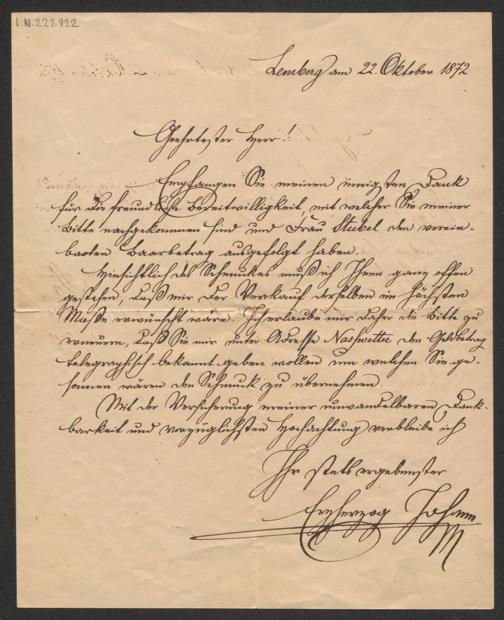 I.N. 222.922
Lemberg am 22. Oktober 1872
Geehrtester Herr!
Empfangen Sie meinen innigsten Dank
für die freundliche Bereitwilligkeit, mit welcher Sie meiner
Bitte nachgekommen sind und Frau Stubel den verein-
barten Baarbetrag ausgefolgt haben.
Hinsichtlich des Schmuckes muß ich Ihnen ganz offen
gestehen, daß mir der Verkauf desselben im höchsten
Maße erwünscht wäre. Ich erlaube mir daher die Bitte zu
erneuern, daß Sie mir unter Adresse den Geldbetrag
telegraphisch bekannt geben wollen um welchen Sie ge-
sonnen wären den Schmuck zu übernehmen.
Mit der Versicherung meiner unwandelbaren Dank-
barkeit und vorzüglichsten Hochachtung verbleibe ich
Ihr stets ergebenster
Erzherzog Johann